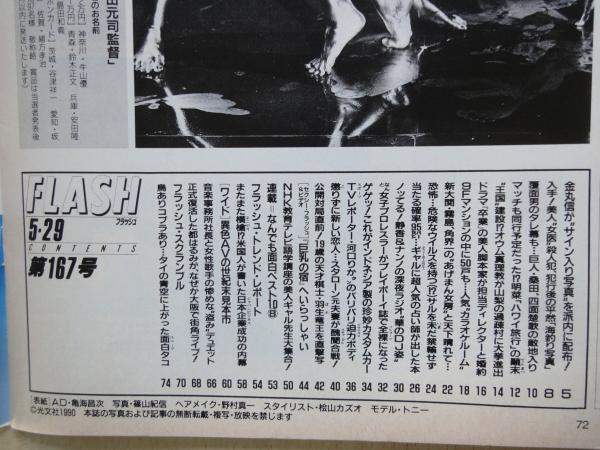 田元司監督」
のお名前
神奈川・牛山優
青森・鈴木正文 兵庫・安田隆
島田和義
茨城・谷津祥一 愛知・坂
佐賀・緒方孝治
敬称略 賞品は当選者発表後
以内に発送いたします)
FLASH
フラッシュ
5・29
CONTENTS
第167号
金丸信が“サイン入り写真”を派内に配布! 5
入手!美人“女医”殺人犯、犯行後の平然、“海釣り写真” 8
覆面男のタレ幕も…巨人・桑田、四面楚歌の敵地入り 10
マッチも同行予定だった!?明菜、「ハワイ旅行」の顛末 12
“王国”建設!?オウム真理教が山梨の過疎村に大挙進出 14
ドラマ『卒業』の美人脚本家が担当ディレクターと婚約 16
9Fマンションの中に50戸も!…人気“カラオケルーム” 18
新大関・霧島、角界一の“あげまん女房”と天下晴れて… 22
恐怖・危険なウイルスを持つ“殺人”サルを未だ禁輸せず 24
当たる確率95%…ギャルに超人気の占い師が出した本 26
ノッてる!静香&ナンノの深夜ラジオ、“華のDJ姿” 30
女子プロレスラーがプレイボーイ誌で全裸になった 32
ゲゲッ!これがインドネシア製の珍妙カスタムカー 34
TVレポーター“河口のか”のバリバリ迫力ボディ 36
懲りずに新しい恋人…スタローン元夫妻が醜聞合戦! 40
公開対局直前!19歳の天才棋士・羽生竜王を直撃写 42
「巨乳の宿」へいらっしゃい 44
NHK教育テレビ語学講座の美人ギャル先生大集合! 50
連載=なんでも面白ベスト10⑧ 53
フラッシュ・トレンド・レポート 54
また横槍!?米国人が書いた日本企業成功の内幕 58
[ワイド]異色AVの世紀末見本市 60
音楽事務所社長と女性歌手の惨めな“盗み”デュエット 66
正式復活した都はるみが、なぜか大阪で街角ライブ! 68
フラッシュ・スクランブル 70
鳥ありコブラあり…タイの青空に上がった面白タコ 74
[表紙]AD・亀海昌次 写真・篠山紀信 ヘアメイク・野村真一 スタイリスト・桧山カズオ モデル・トニー
©光文社1990 本誌の写真および記事の無断転載・複写・放映を禁じます
72